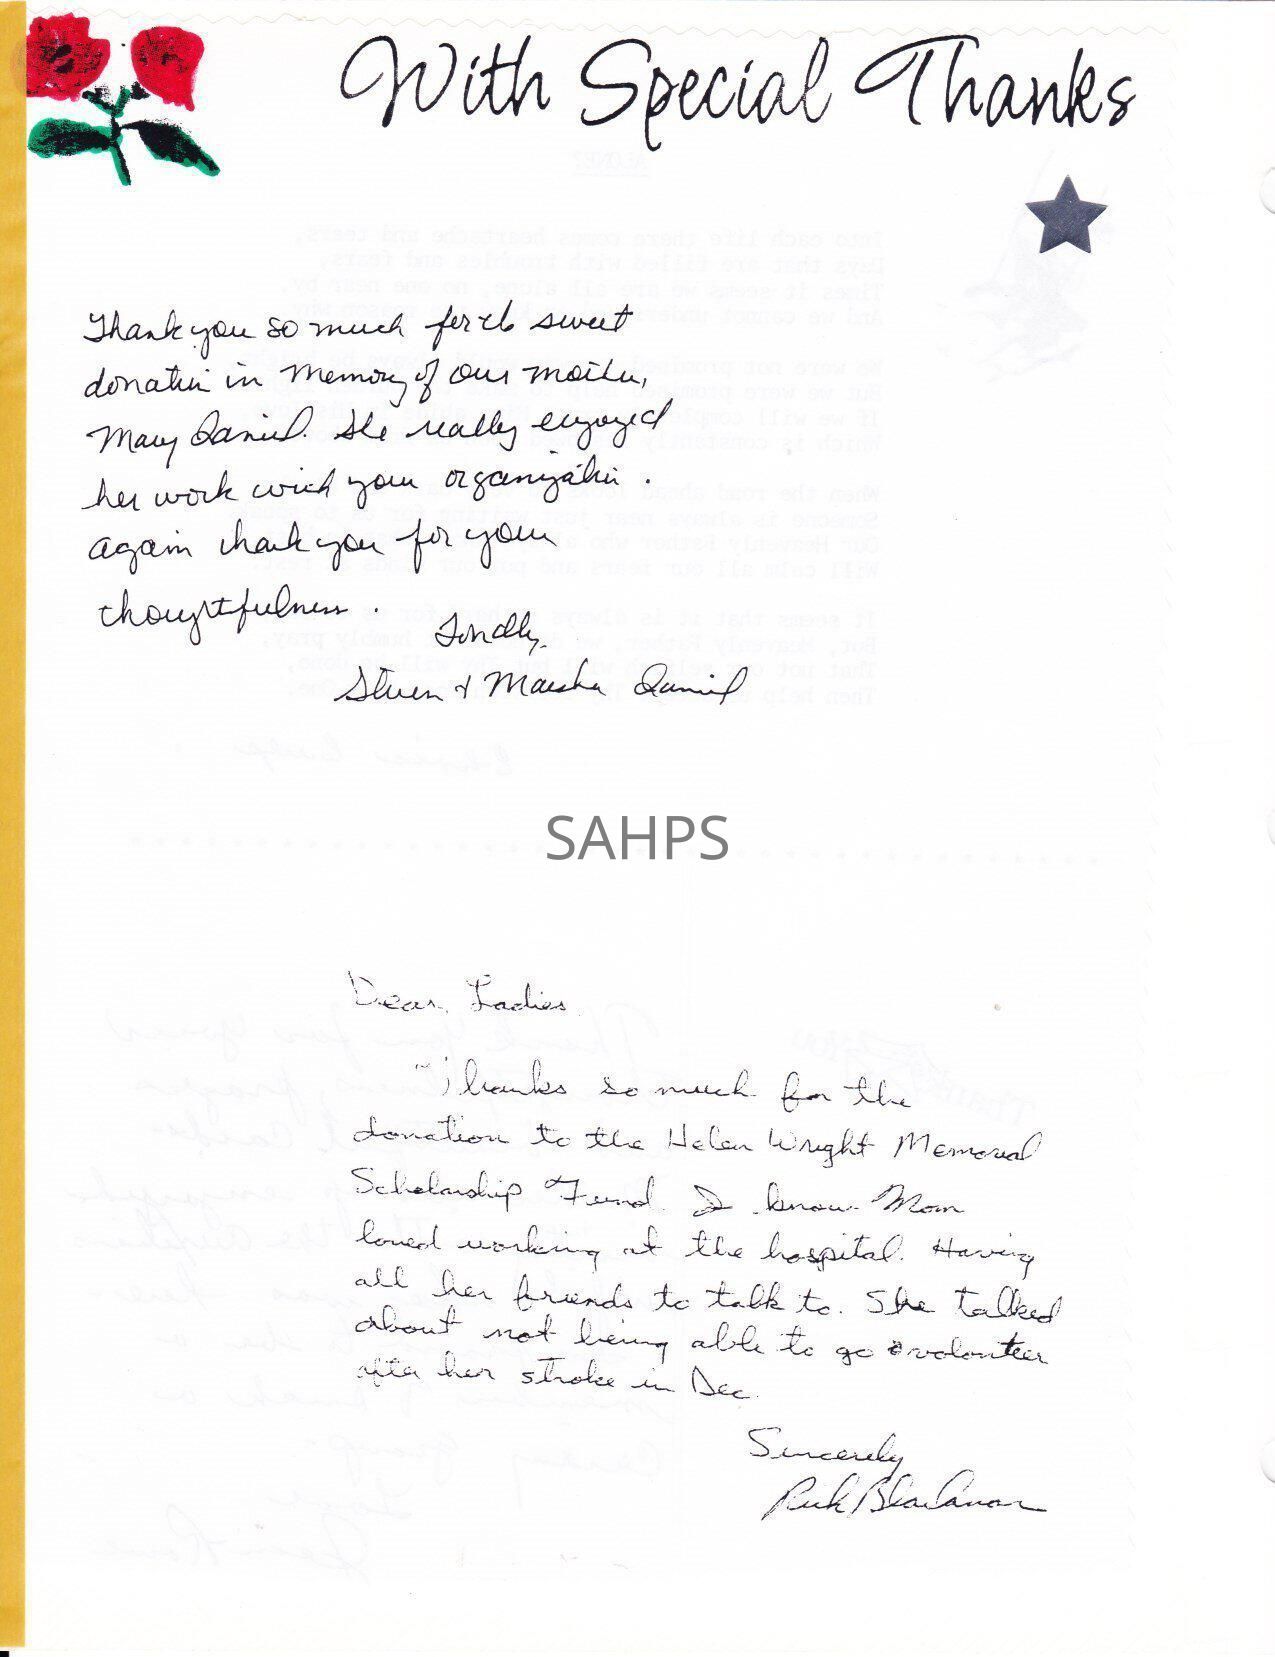 With Special Thanks
Thank you so much for the sweet
donation in memory of our mother,
Mary Daniel. She really enjoyed
her work with your organization.
again thank you for your
thoughtfulness.
Fondly,
Steven & Marsha Daniel
SAHPS
Dear Ladies
Thanks so much for the
donation to the Helen Wright Memorial
Scholarship Fund. I know Mom
loved working at the hospital. Having
all her friends to talk to. She talked
about not being able to go volunteer
after her stroke in Dec.
Sincerely
Rick